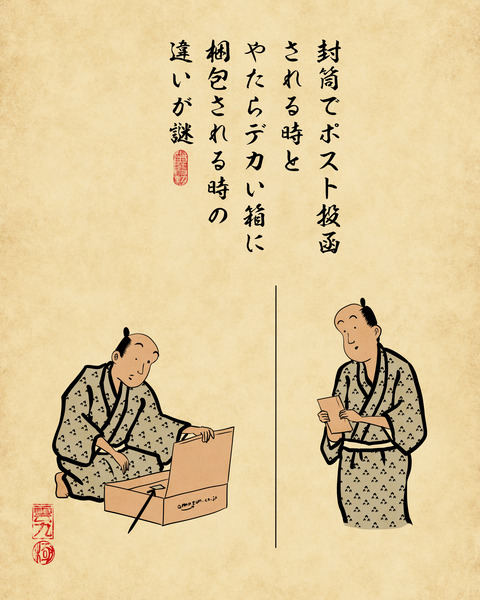 封筒でポスト投函
される時と
やたらデカい箱に
梱包される時の
違いが謎